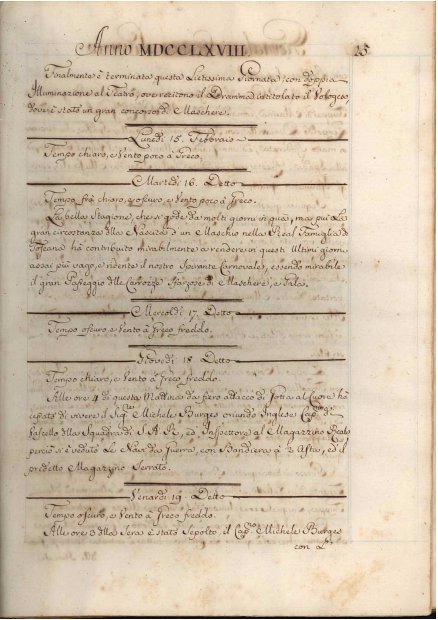 Anno MDCCLXVIII. 25
Finalmente è terminata questa Lietissima Giornata con doppia
Illuminazione al Teatro, ove recitono il Dramma intitolato il Vologeso,
dove è stato un gran concorso di Maschere.
Lunedì 15. Febbraio
Tempo chiaro, e Vento poco à Greco.
Martedì 16. Detto
Tempo frà chiaro, e oscuro, e Vento poco à Greco.
La bella Stagione, che si gode da molti giorni in quà, ma più La
gran circostanza della Nascita d'un Maschio nella Real Famiglia di
Toscana hà contribuito mirabilmente a rendere in questi Ultimi giorni
assai più vago, e ridente il nostro Spirante Carnevale, essendo mirabile
il gran Passeggio delle Carrozze Sfarzose di Maschere, e Gala.
Mercoldì 17. Detto
Tempo oscuro, e Vento à Greco freddo.
Giovedì 18. Detto
Tempo chiaro, e Vento à Greco freddo.
Alle ore 4 di questa Mattina da fiero attacco di Gotta al Cuore hà
cessato di vivere il Sig.re Michele Burges oriundo Inglese Cap.no di
Vascello della Squadra di S. A. R., ed Inspettore al Magazzino Reale
perciò si è veduto Le Navi da Guerra, con Bandiera à 2 Asta, ed il
predetto Magazzino Serrato.
Venardì 19. Detto
Tempo oscuro, e Vento à Greco freddo.
Alle ore 3 della Sera è stato Sepolto il Cap.no Michele Burges
con L'